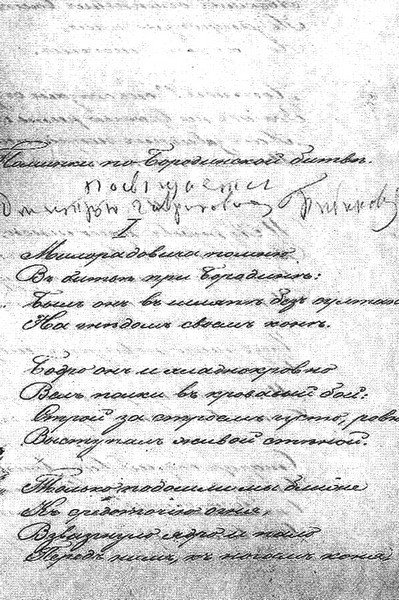 Поминки по Бородинской битвѣ.
Посвящается
Дмитрію Гавриловичу Бибикову
I
Милорадовича помню
Въ битвѣ при Бородинѣ:
Былъ онъ въ шляпѣ безъ султана
На гнѣдомъ своемъ конѣ.
Бодро онъ и хладнокровно
Велъ полки въ кровавый бой:
Строй за строемъ густо, ровн
Выступалъ живой стѣной.
Только подошли мы ближе
Къ средоточію огня,
Взвизгнуло ядро и пало
Передъ нимъ, къ ногамъ коня,